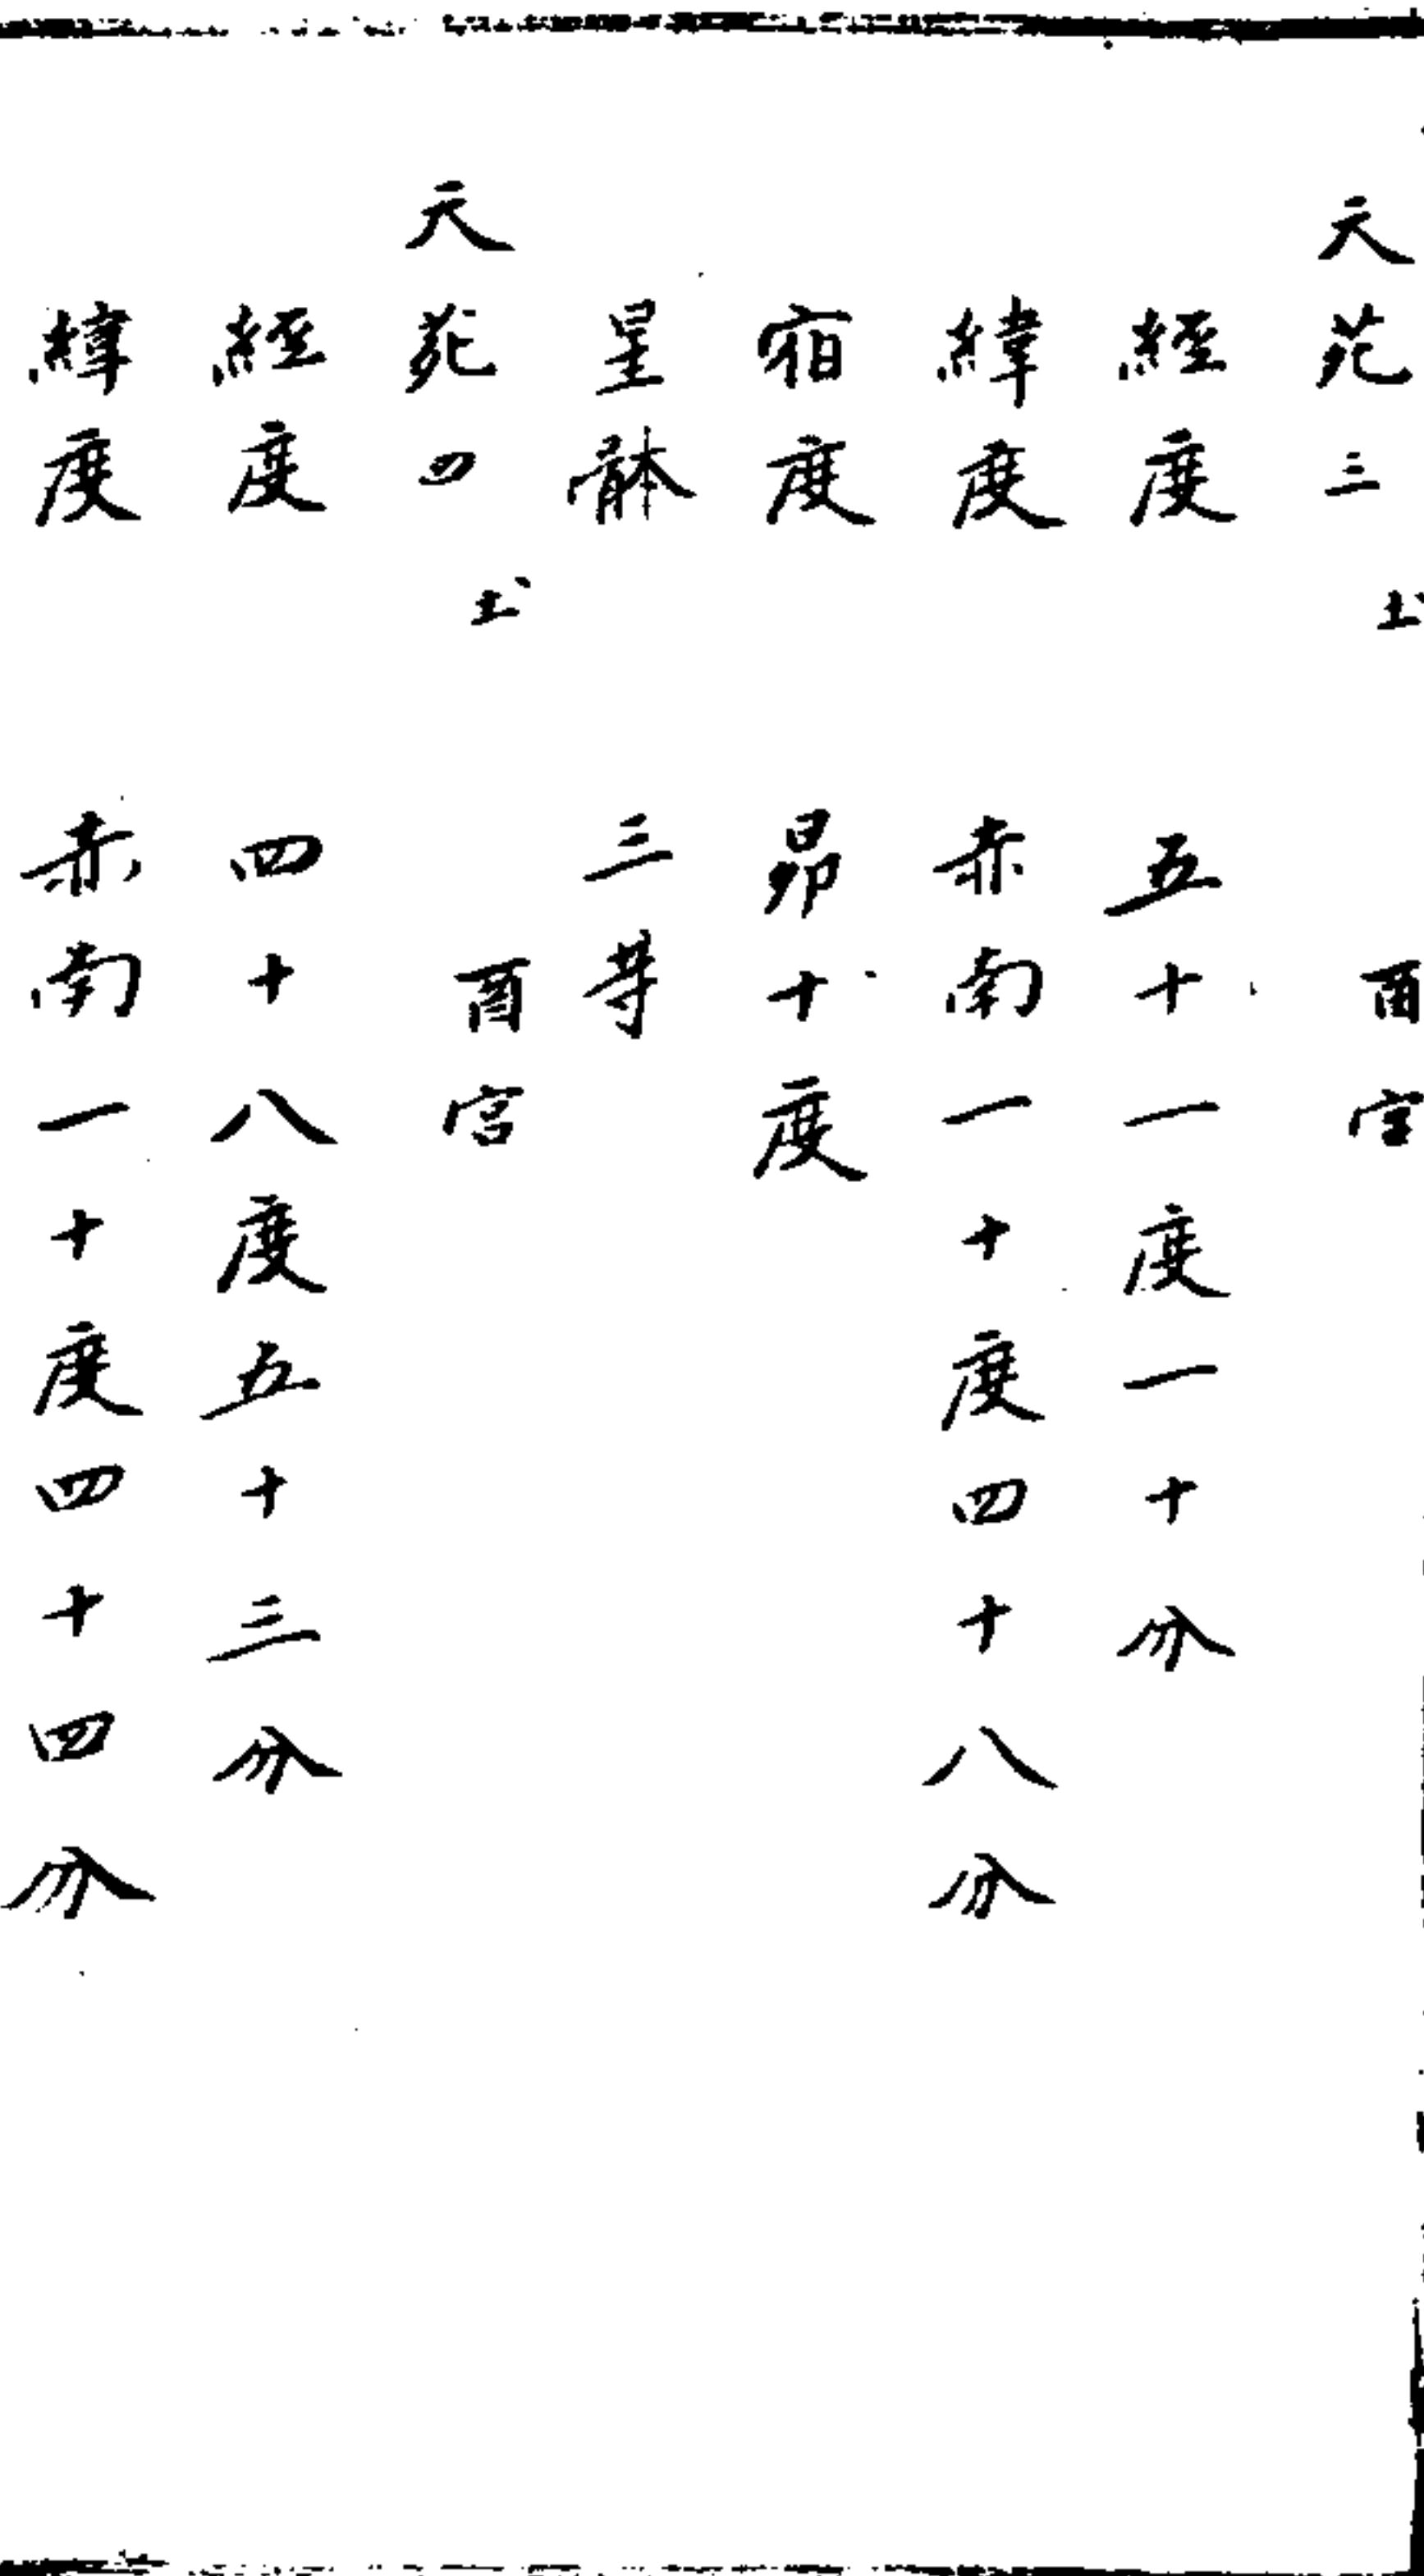 天苑三 土 酉宮
經度 五十一度一十分
緯度 赤南一十度四十八分
宿度 昴十度
星體 三等
天苑四 土 酉宮
經度 四十八度五十三分
緯度 赤南一十度四十四分